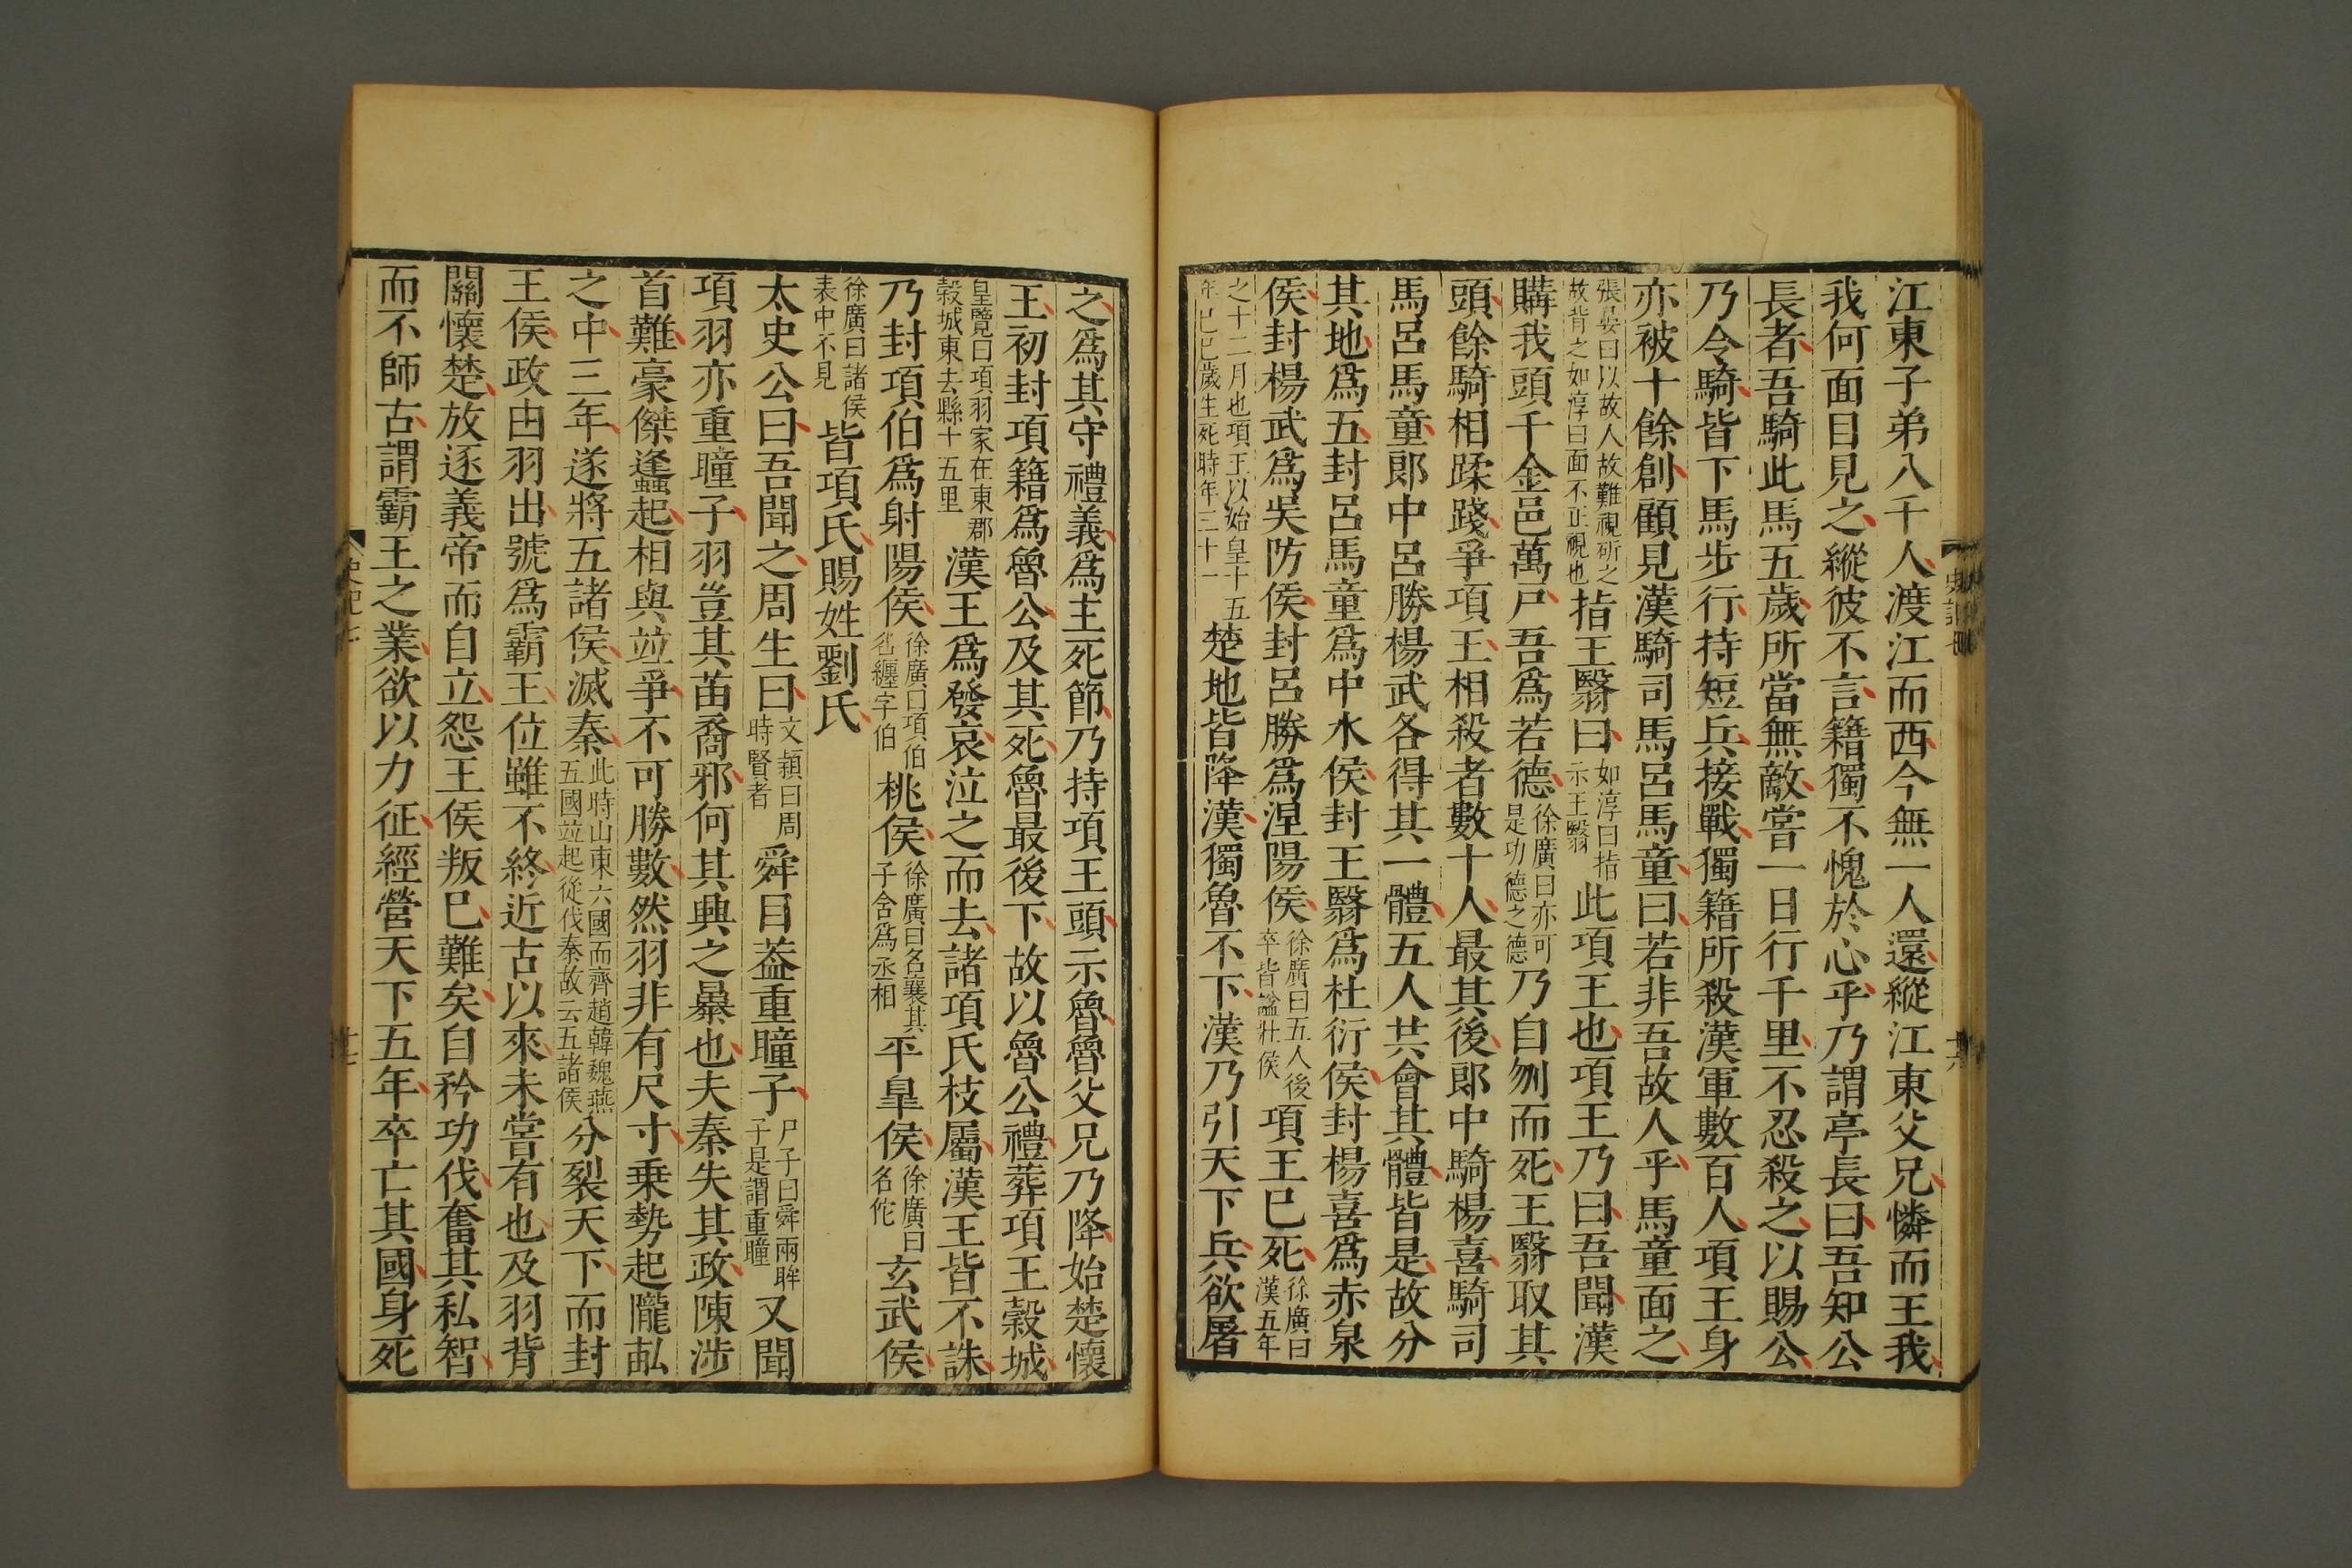 江東子弟八千人渡江而西今無一人還縱江東父兄憐而王我
我何面目見之縱彼不言籍獨不愧於心乎乃謂亭長曰吾知公
長者吾騎此馬五歲所當無敵嘗一日行千里不忍殺之以賜公
乃令騎皆下馬步行持短兵接戰獨籍所殺漢軍數百人項王身
亦被十餘創顧見漢騎司馬呂馬童曰若非吾故人乎馬童面之
張晏曰以故人故難視斫之故背之如淳曰面不正視也指王翳曰如淳曰指示王翳此項王也項王乃曰吾聞漢
購我頭千金邑萬戶吾爲若德徐廣曰亦可是功德之德乃自刎而死王翳取其
頭餘騎相蹂踐爭項王相殺者數十人最其後郎中騎楊喜騎司
馬呂馬童郎中呂勝楊武各得其一體五人共會其體皆是故分
其地爲五封呂馬童爲中水侯封王翳爲杜衍侯封楊喜爲赤泉
侯封楊武爲吳防侯封呂勝爲涅陽侯徐廣曰五人後卒皆謚壯侯項王已死徐廣曰漢五年
之十二月也項王以始皇十五年己巳歲生死時年三十一楚地皆降漢獨魯不下漢乃引天下兵欲屠
之爲其守禮義爲主死節乃持項王頭示魯魯父兄乃降始楚懷
王初封項籍爲魯公及其死魯最後下故以魯公禮葬項王穀城
皇覽曰項羽冢在東郡穀城東去縣十五里漢王爲發哀泣之而去諸項氏枝屬漢王皆不誅
乃封項伯爲射陽侯徐廣曰項伯名纏字伯桃侯徐廣曰名襄其子舍爲丞相平臯侯徐廣曰名佗玄武侯
徐廣曰諸侯表中不見皆項氏賜姓劉氏
太史公曰吾聞之周生曰文穎曰周時賢者舜目葢重瞳子尸子曰舜兩眸子是謂重瞳又聞
項羽亦重瞳子羽豈其苗裔邪何其興之暴也夫秦失其政陳涉
首難豪傑蠭起相與並爭不可勝數然羽非有尺寸乗勢起隴畝
之中三年遂將五諸侯滅秦此時山東六國而齊趙韓魏燕五國並起從伐秦故云五諸侯分裂天下而封
王侯政由羽出號爲霸王位雖不終近古以來未嘗有也及羽背
關懷楚放逐義帝而自立怨王侯叛己難矣自矜功伐奮其私智
而不師古謂霸王之業欲以力征經營天下五年卒亡其國身死
史記七
十七